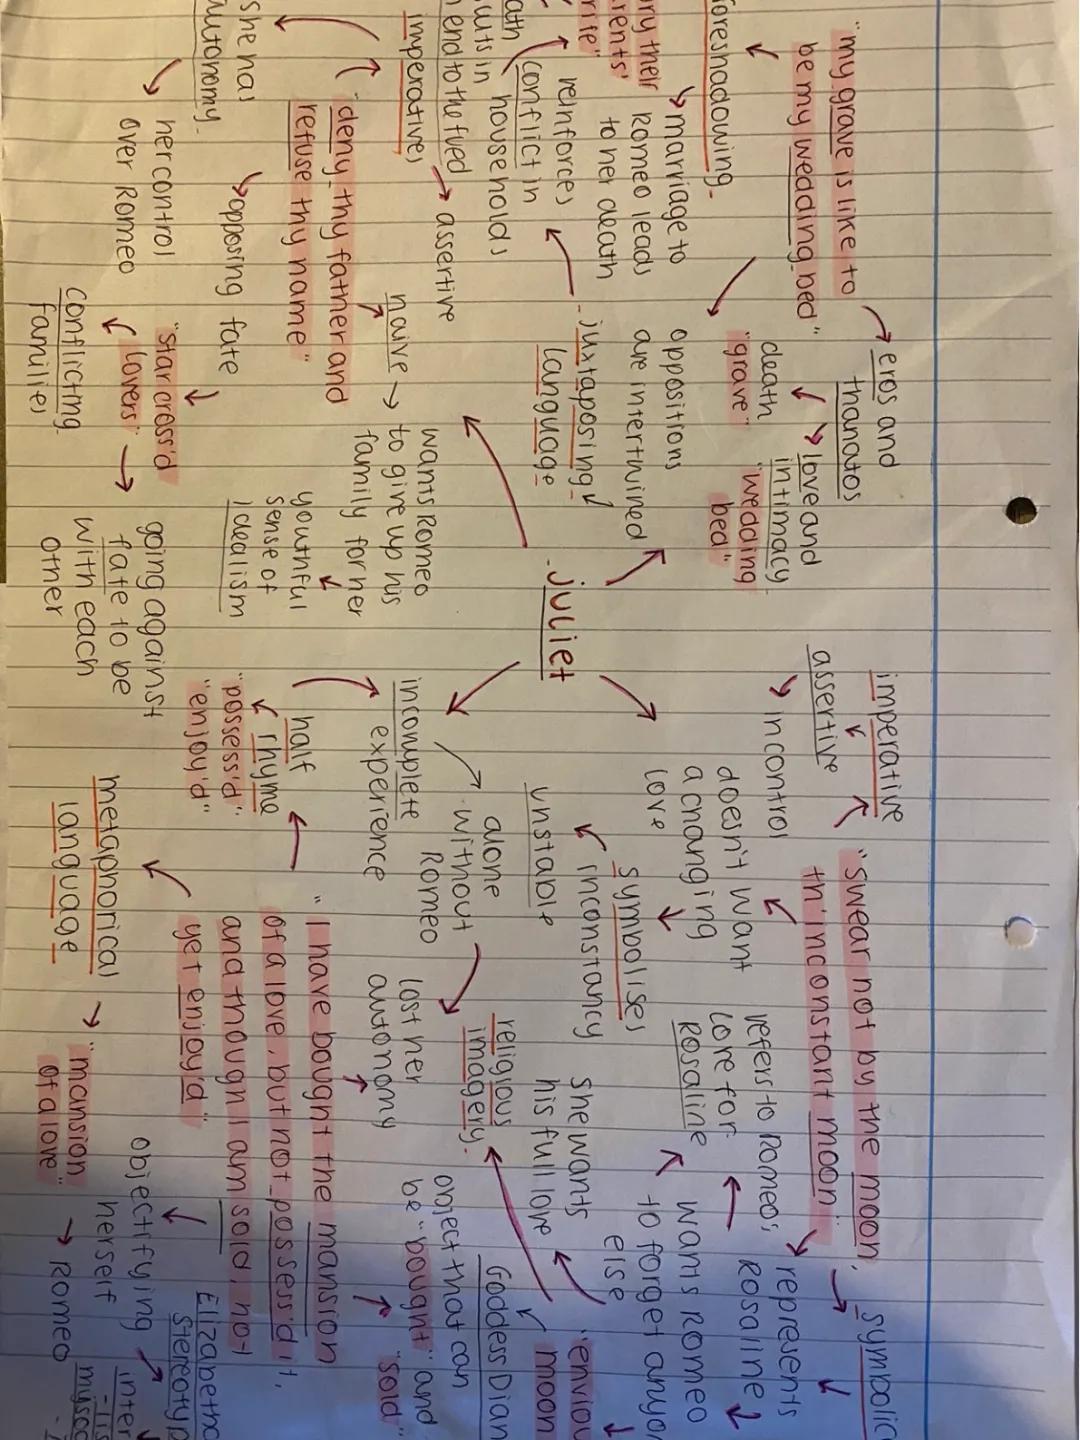 "my grave is like to
be my wedding bed"
eros and
thanatos
love and
intimacy
"wedding
bed"
death
"grave"
foreshadowing.
marriage to
Romeo leads
to her death
oppositions
are intertwined
their
reinforces
conflict in
households
end to the fued
- juxtaposing
language
imperatives
assertive
"deny thy father and
refuse thy name"
naive
wants Romeo
to give up his
family for her
youthful
sense of
idealism
she has
autonomy.
her control
over Romeo
opposing fate
"star cross'd
lovers"
conflicting
families
going against
fate to be
with each
other
- juliet
imperative
assertive
in control
"Swear not by the moon,
th'inconstant moon"
symbolic
represents
Rosaline
doesn't want
a changing
love
refers to Romeo's
love for
Rosaline
wants Romeo
to forget
else
symbolises
inconstancy
unstable
she wants
his full love
moon
Goddess
religious
imagery.
alone
without
Romeo
incomplete
experience
lost her
autonomy
object that can
be "bought" and
"sold"
half
rhyme
"possess'd"
"enjoy'd"
"I have bought the mansion
of a love, but not possess'd it,
and though I am sold, not
yet enjoy'd"
metaphorical
language
"mansion
of a love"
objectifying
herself
Romeo